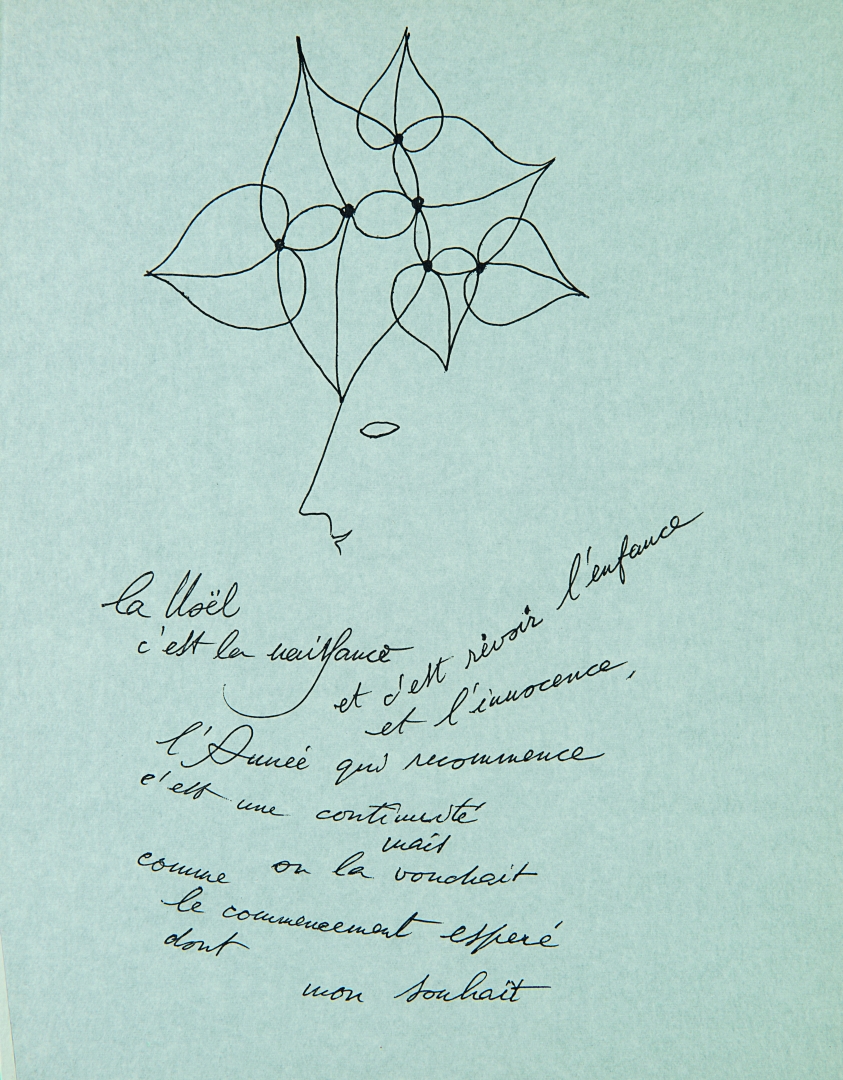 la Noël
c'est la naissance
et c'est revoir l'enfance
et l'innocence,
l'Année qui recommence
c'est une continuité
mais
comme on la voudrait
le commencement esperé
dont
mon souhait